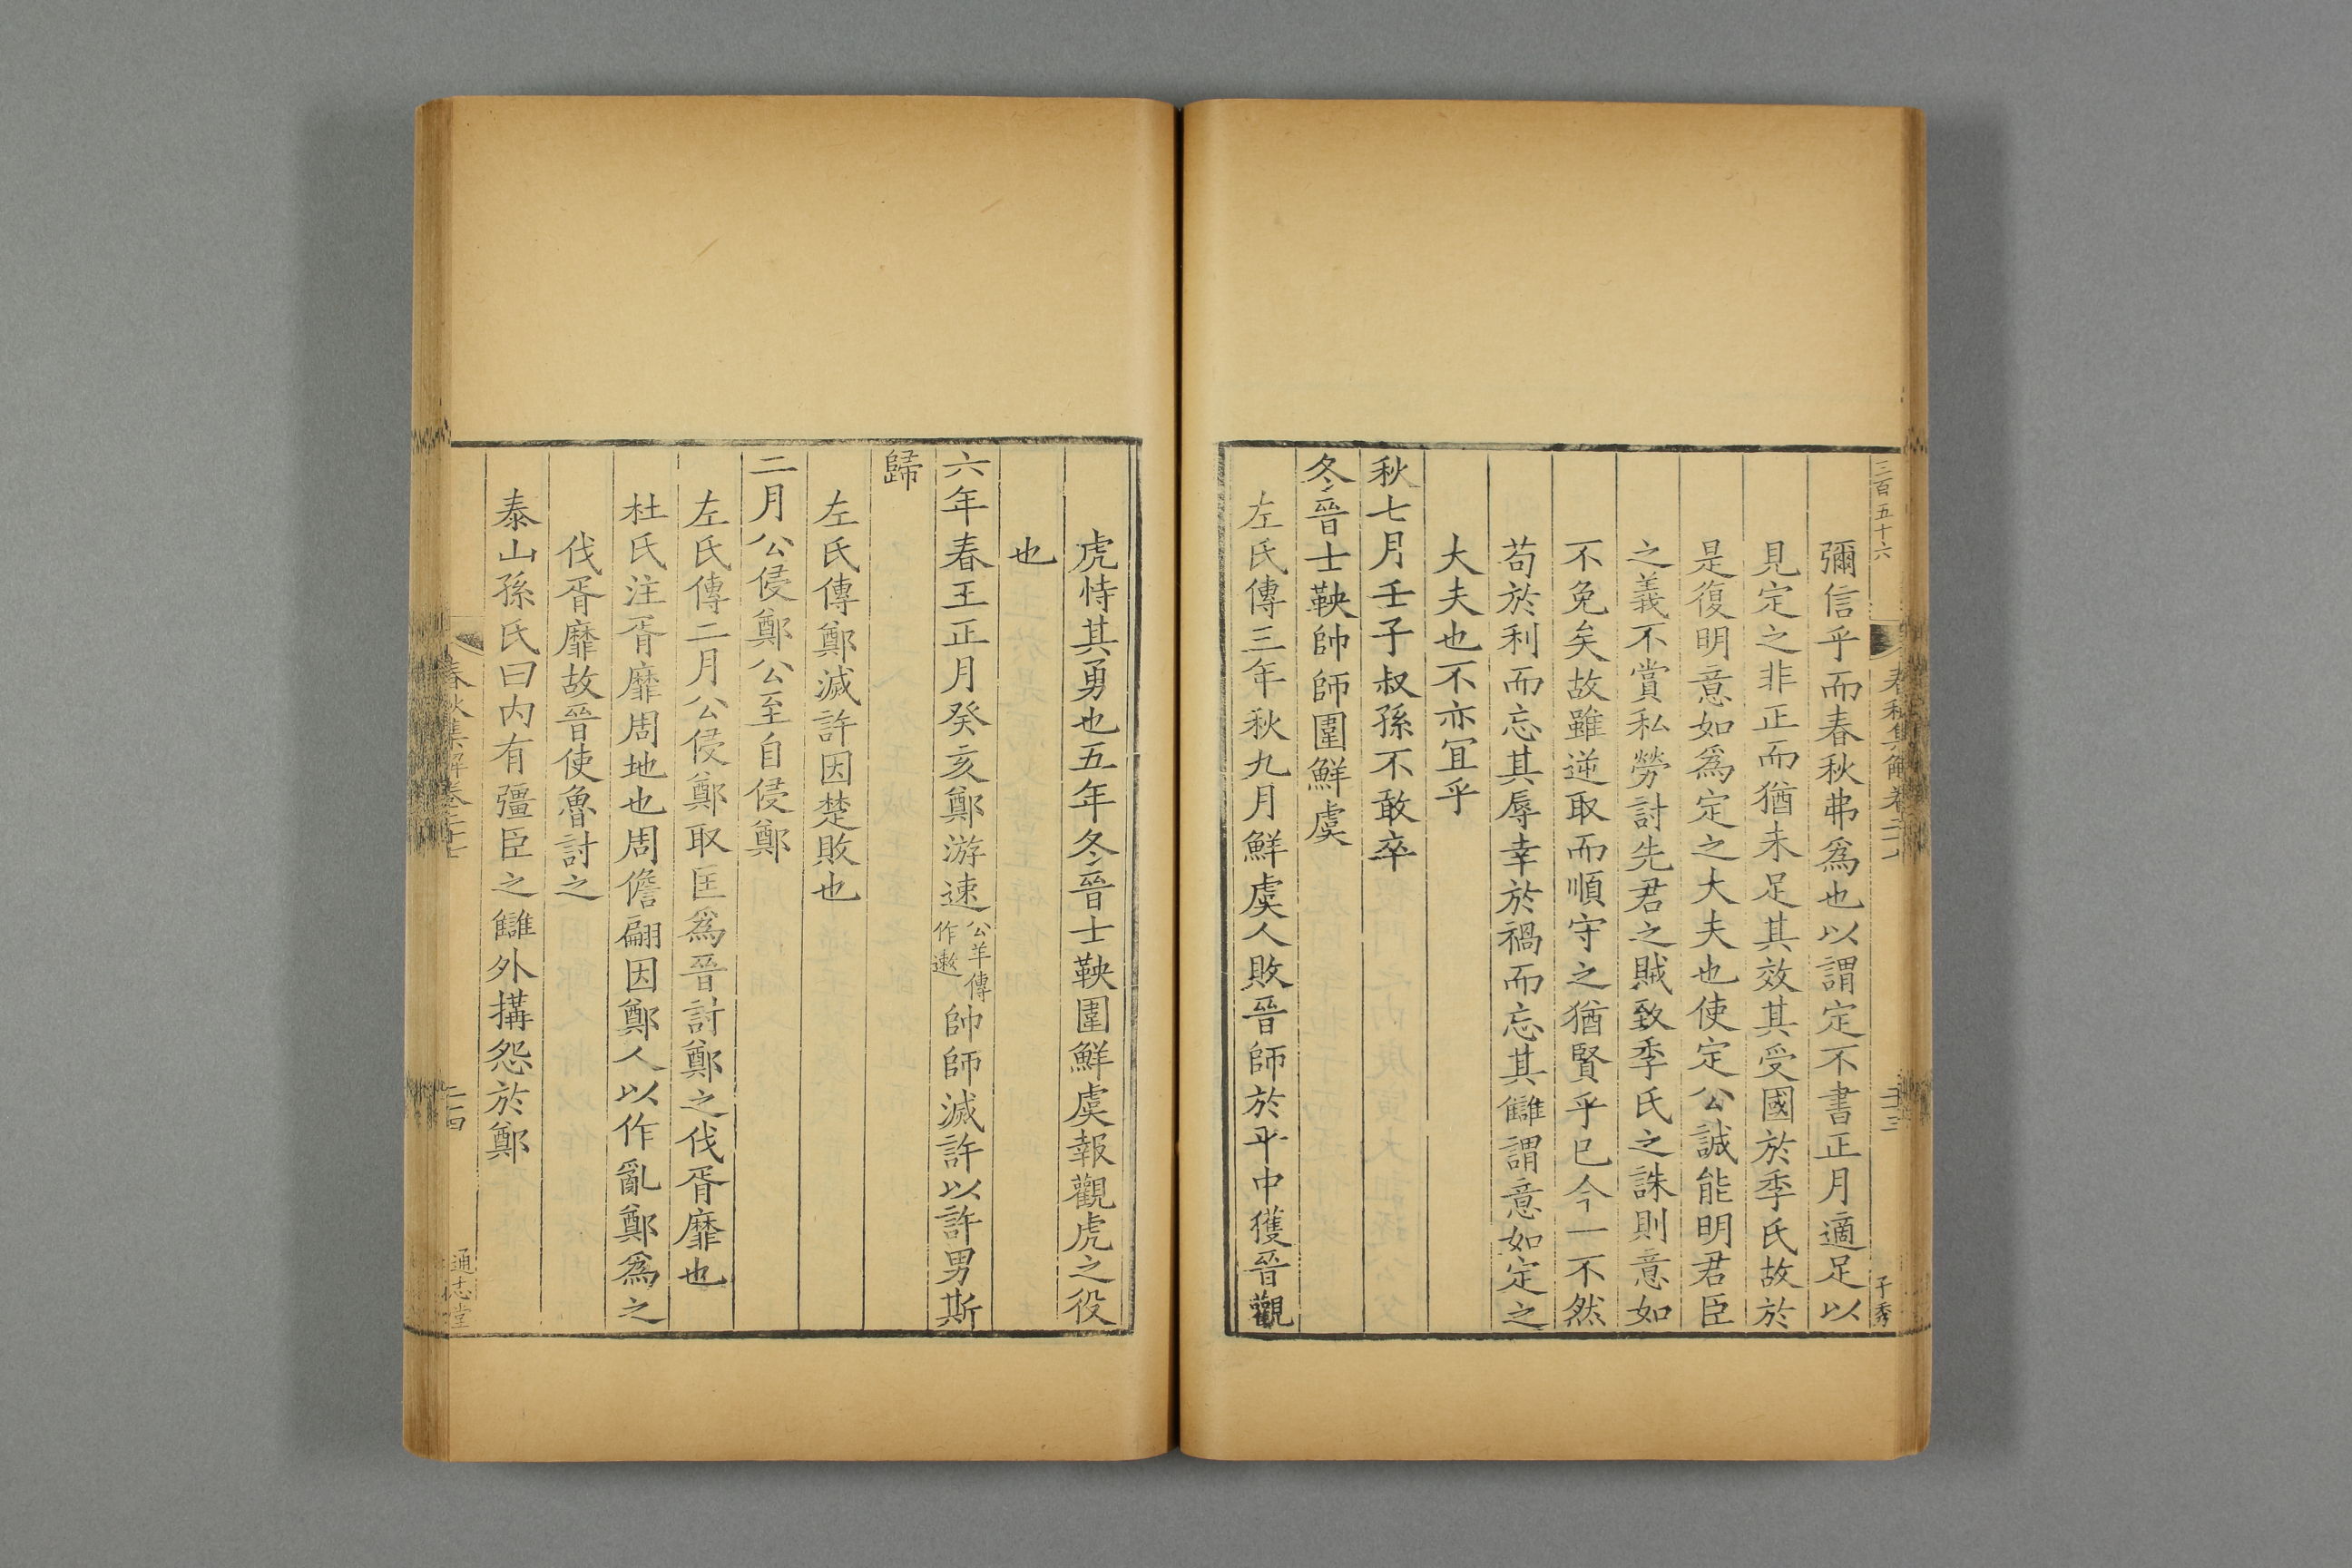 三百五十六
春秋集解卷二十七
二十三
子秀
彌信乎而春秋弗爲也以謂定不書正月適足以
見定之非正而猶未足其效其受國於季氏故於
是復明意如爲定之大夫也使定公誠能明君臣
之義不賞私勞討先君之賊致季氏之誅則意如
不免矣故雖逆取而順守之猶賢乎已今一不然
苟於利而忘其辱幸於禍而忘其讎謂意如定之
大夫也不亦宜乎
秋七月壬子叔孫不敢卒
冬晉士鞅帥師圍鮮虞
左氏傳三年秋九月鮮虞人敗晉師於平中獲晉觀
虎恃其勇也五年冬晉士鞅圍鮮虞報觀虎之役
也
六年春王正月癸亥鄭游速公羊傳作遬帥師滅許以許男斯
歸
左氏傳鄭滅許因楚敗也
二月公侵鄭公至自侵鄭
左氏傳二月公侵鄭取匡爲晉討鄭之伐胥靡也
杜氏注胥靡周地也周儋翩因鄭人以作亂鄭爲之
伐胥靡故晉使魯討之
泰山孫氏曰内有彊臣之讎外搆怨於鄭
春秋集解卷二十七
二十四
通志堂